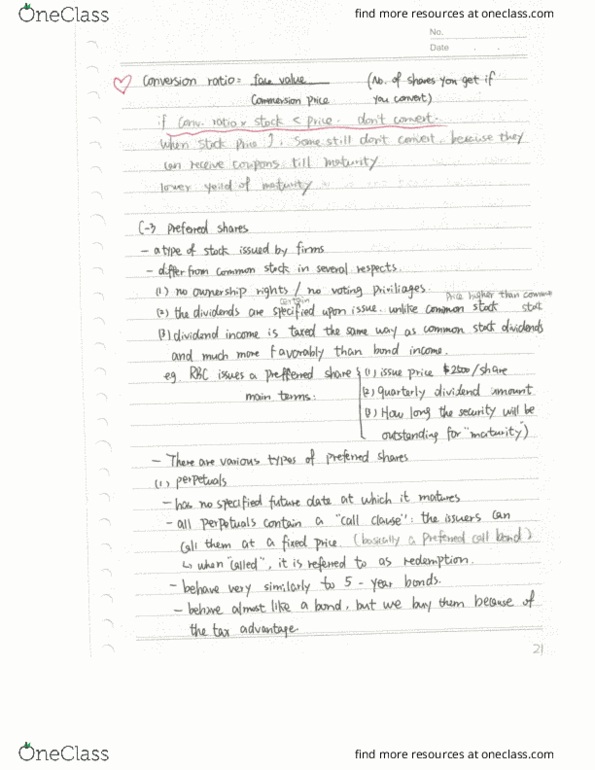 OneClass
find more resources at oneclass.com
No.
Date
Conversion ratio = face value (No. of shares you get if
Conversion price you convert)
if Conv. ratio x stock < price. don't convert.
When stock price ↑, some still don't convert, because they
can receive coupons till maturity
lower yeild of maturity
(-) Preferred shares
- a type of stock issued by firms
- differ from common stock in several respects.
(1) no ownership rights / no voting priviliages.
certain Price higher than common
(2) the dividends are specified upon issue. unlike common stock
(3) dividend income is taxed the same way as common stock dividends
and much more favorably than bond income.
eg RBC issues a preffered share (1) issue price $2500/share
main terms: (2) Quarterly dividend amount
(3) How long the security will be
outstanding for "maturity")
- There are various types of preferred shares
(1) perpetuals
- has no specified future date at which it matures
- all perpetuals contain a "call clause": the issuers can
call them at a fixed price. (basically a preferred call bond)
↳ when "called", it is referred to as redemption.
- behave very similarly to 5 - year bonds.
- behave almost like a bond, but we buy them because of
the tax advantage
21
OneClass
find more resources at oneclass.com